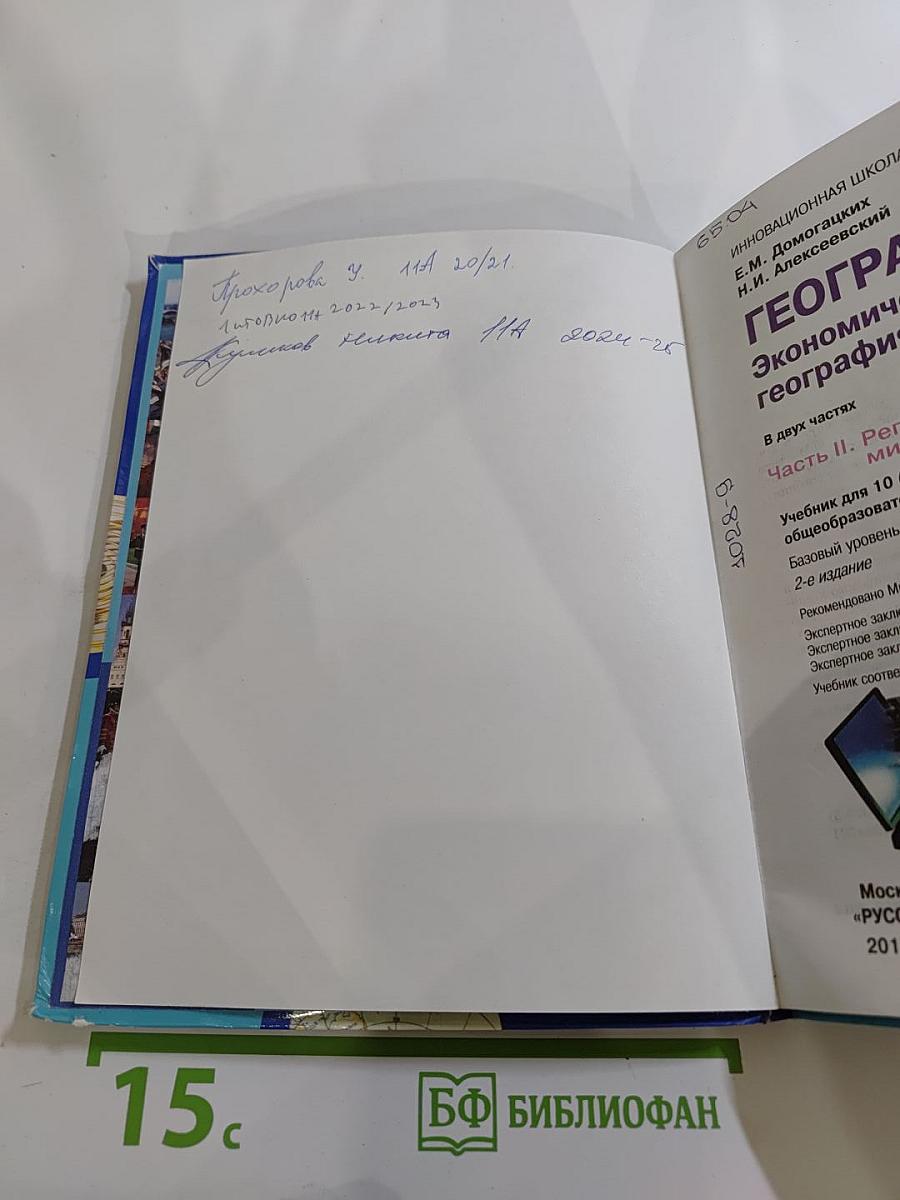 Прохорова У. 11А 20/21.
2022/2023
Никита 11А 2024-25
65.04
ИННОВАЦИОННАЯ ШКОЛА
Е.М. Домогацких
Н.И. Алексеевский
ГЕОГРА
Экономиче
географи
В двух частях
Часть II. Рег
ми
Б-8204
Учебник для 10 (
общеобразоват
Базовый уровень
2-е издание
Рекомендовано М
Экспертное заклю
Экспертное закл
Экспертное закл
Учебник соотве
Моск
«РУСС
201
15 с
БФ БИБЛИОФАН